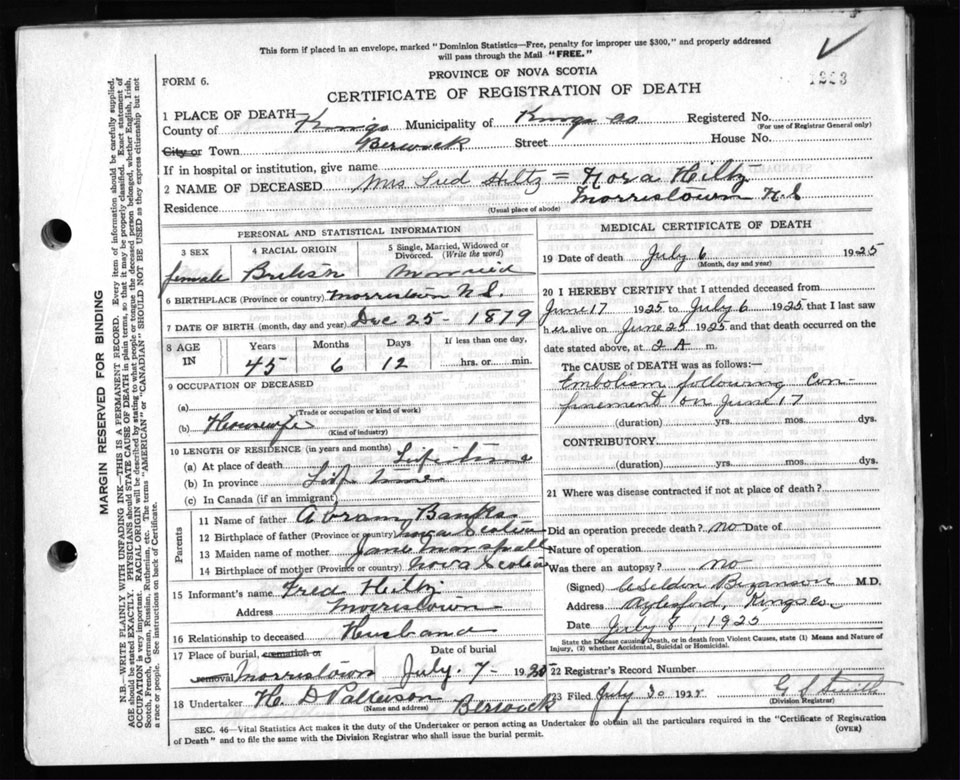 This form if placed in an envelope, marked "Dominion Statistics—Free, penalty for improper use $300," and properly addressed
will pass through the Mail "FREE."
PROVINCE OF NOVA SCOTIA
FORM 6.
CERTIFICATE OF REGISTRATION OF DEATH
1 PLACE OF DEATH
County of Kings Municipality of Kings Co Registered No.
(For use of Registrar General only)
City or Town Berwick Street House No.
If in hospital or institution, give name
2 NAME OF DECEASED Mrs Fred Hiltz = Nora Hiltz
Residence Morristown N.S
(Usual place of abode)
PERSONAL AND STATISTICAL INFORMATION
3 SEX 4 RACIAL ORIGIN 5 Single, Married, Widowed or
Divorced. (Write the word)
female British Married
6 BIRTHPLACE (Province or country) Morristown N.S.
7 DATE OF BIRTH (month, day and year) Dec 25 - 1879
8 AGE IN Years Months Days If less than one day,
45 6 12 hrs. or min.
9 OCCUPATION OF DECEASED
(a)
(Trade or occupation or kind of work)
(b) Housewife
(Kind of industry)
10 LENGTH OF RESIDENCE (in years and months)
(a) At place of death Lifetime
(b) In province Life time
(c) In Canada (if an immigrant)
Parents
11 Name of father Avram Banks
12 Birthplace of father (Province or country) Nova Scotia
13 Maiden name of mother Jane Marshall
14 Birthplace of mother (Province or country) Nova Scotia
15 Informant's name Fred Hiltz
Address Morristown
16 Relationship to deceased Husband
17 Place of burial, cremation or
removal Morristown July 7 - 1925
Date of burial
18 Undertaker H. D Patterson Berwick
(Name and address)
MEDICAL CERTIFICATE OF DEATH
19 Date of death July 6 1925
(Month, day and year)
20 I HEREBY CERTIFY that I attended deceased from
June 17 1925 to July 6 1925 that I last saw
her alive on June 25 1925 and that death occurred on the
date stated above, at 2 A m.
The CAUSE OF DEATH was as follows:—
Embolism following Con
finement on June 17
(duration) yrs. mos. dys.
CONTRIBUTORY
(duration) yrs. mos. dys.
21 Where was disease contracted if not at place of death?
Did an operation precede death? no Date of
Nature of operation
Was there an autopsy? no
(Signed) Bezanson M.D.
Address Aylesford, Kings Co
Date July 8, 1925
State the Disease causing Death, or in death from Violent Causes, state (1) Means and Nature of
Injury, (2) whether Accidental, Suicidal or Homicidal.
22 Registrar's Record Number
23 Filed July 20 G S Smith
(Division Registrar)
SEC. 46—Vital Statistics Act makes it the duty of the Undertaker or person acting as Undertaker to obtain all the particulars required in the "Certificate of Registration
of Death" and to file the same with the Division Registrar who shall issue the burial permit.
(OVER)
MARGIN RESERVED FOR BINDING
N.B.—WRITE PLAINLY WITH UNFADING INK—THIS IS A PERMANENT RECORD. Every item of information should be carefully supplied.
AGE should be stated EXACTLY. PHYSICIANS should STATE CAUSE OF DEATH in plain terms, so that it may be properly classified. Exact statement of
OCCUPATION is very important. RACIAL ORIGIN will be described by stating to what people or tongue the deceased person belonged, whether English, Irish,
Scotch, French, German, Russian, Ruthenian, etc. The terms "AMERICAN" or "CANADIAN" SHOULD NOT BE USED as they express citizenship but not
a race or people. See instructions on back of Certificate.